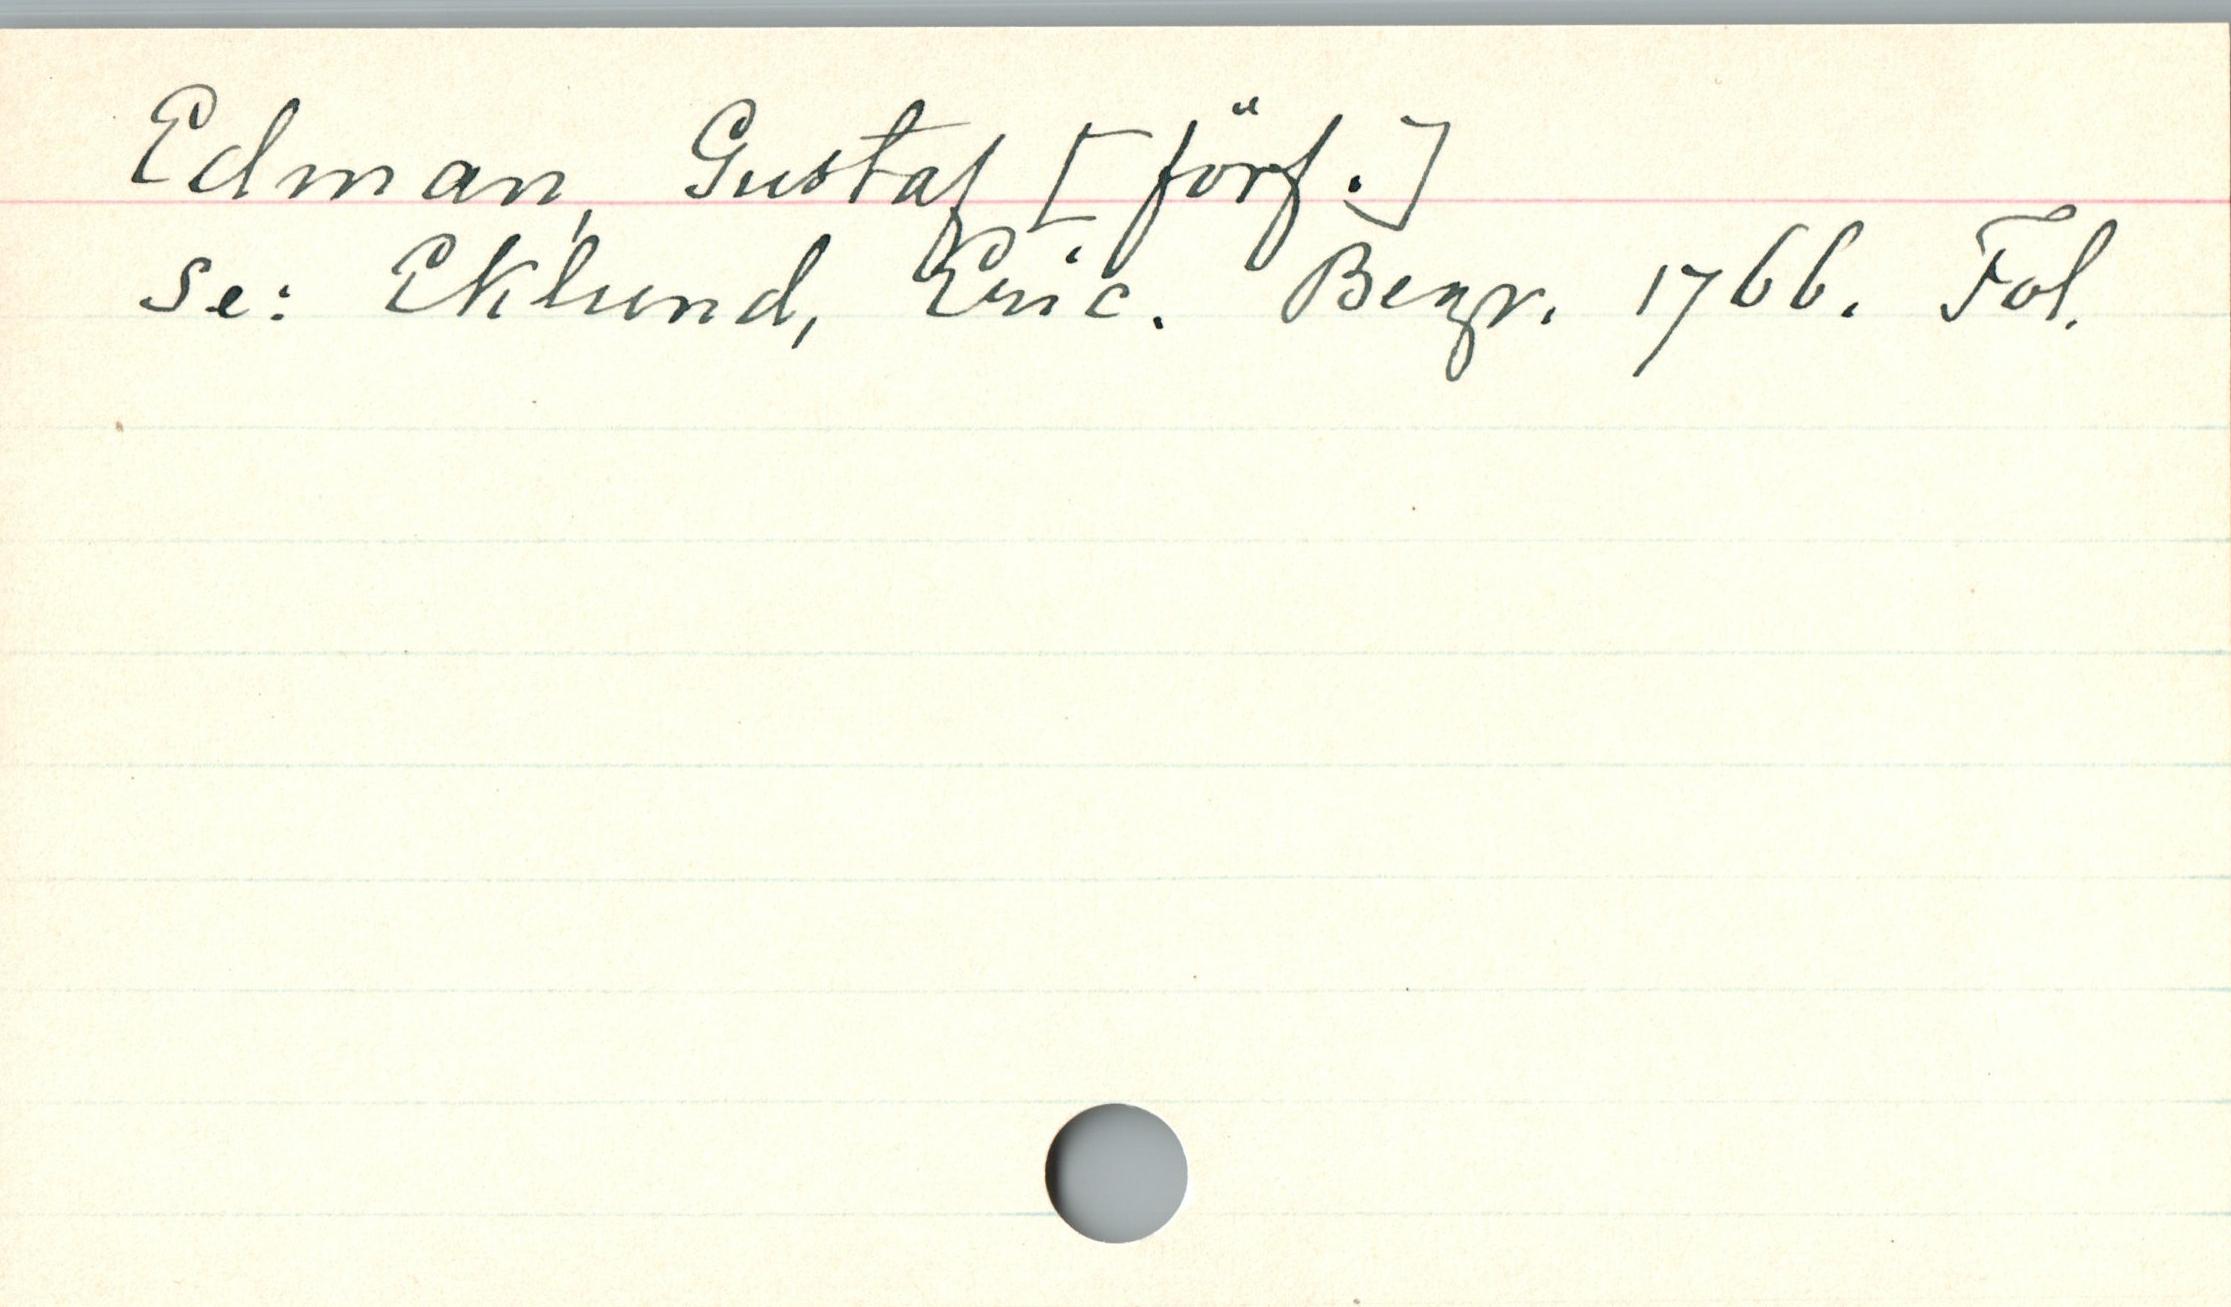 Edman, Gustaf [förf.]
se: Eklund, Eric. Begr. 1766. Fol.